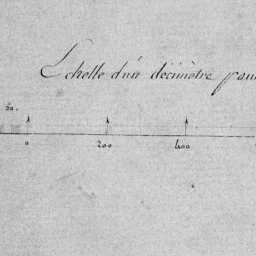 Echelle d'un décimètre pour
50.
0 200 400